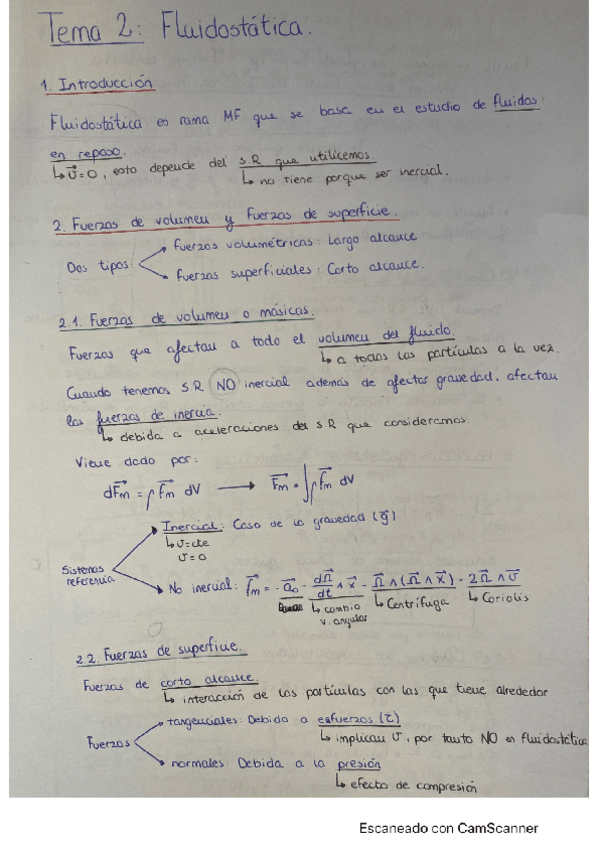 Tema 2: Fluidostática.
1. Introducción
Fluidostática es rama MF que se basa en el estudio de fluidos
en reposo.
↳ v⃗=0, esto depende del S.R que utilicemos.
↳ no tiene porque ser inercial.
2. Fuerzas de volumen y Fuerzas de superficie.
Dos tipos:
Fuerzas volumétricas: Largo alcance
Fuerzas superficiales: Corto alcance.
2.1. Fuerzas de volumen o másicas.
Fuerzas que afectan a todo el volumen del fluido.
↳ a todas las partículas a la vez.
Cuando tenemos S.R NO inercial además de afectar gravedad, afectan
las fuerzas de inercia.
↳ debida a aceleraciones del S.R que consideramos.
Viene dado por:
dF⃗m = ρ f⃗m dV → F⃗m = ∫ρ f⃗m dV
Sistemas referencia
Inercial: Caso de la gravedad (g⃗)
↳ v=cte
v=0
No inercial: f⃗m = -a⃗o - dΩ⃗/dt ∧ x⃗ - Ω⃗ ∧ (Ω⃗ ∧ x⃗) - 2Ω⃗ ∧ v⃗
↳ cambio v. angular
↳ Centrífuga
↳ Coriolis
2.2. Fuerzas de superficie.
Fuerzas de corto alcance.
↳ interacción de las partículas con las que tiene alrededor
Fuerzas
tangenciales: Debida a esfuerzos (τ)
↳ implican v, por tanto NO en fluidostática
normales: Debida a la presión
↳ efecto de compresión
Escaneado con CamScanner